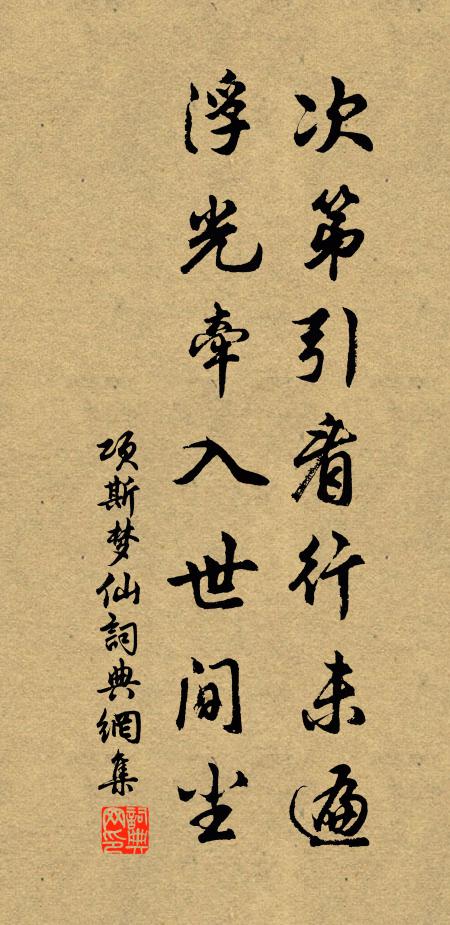 次第引看行未遍
浮光牵入世间尘
项斯梦仙詞典網集
詞典
网印